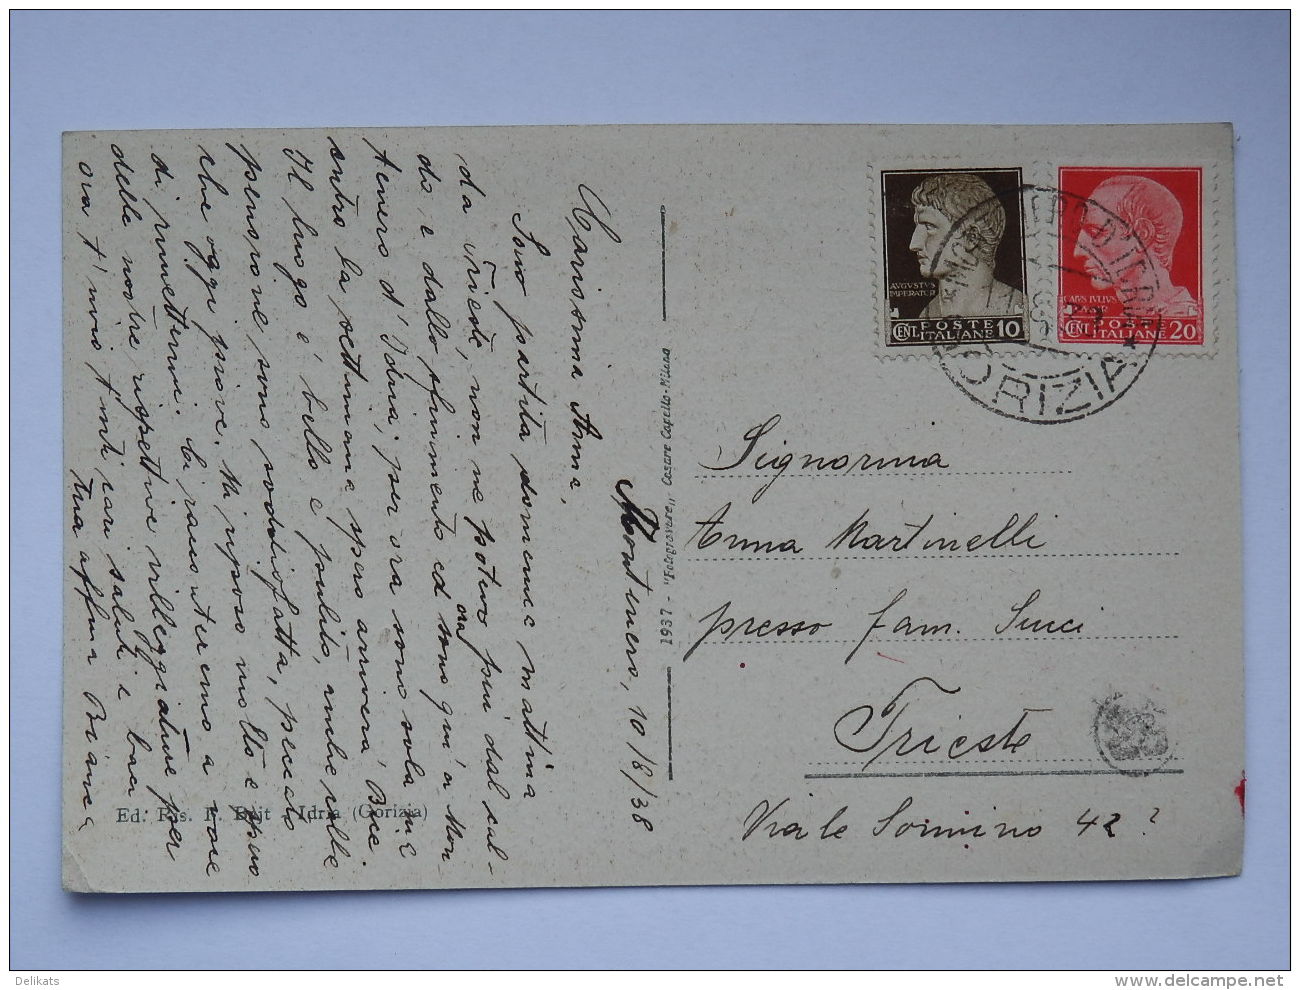 Montenero, 10/8/38
Carissima Anna,
Sono partita domenica mattina
da Trieste, non ne potevo più dal cal-
do e dallo sfinimento ed ora sono qui a Mon-
tenero d'Idria; per ora sono sola ma
entro la settimana spero arriverà Bice.
Il luogo è bello e pulito, anche delle
persone sono soddisfatta, peccato
che oggi piove. Mi riposo molto e spero
di rimettermi. Ci racconteremo a voce
delle nostre rispettive villeggiature per
ora t'invio tanti cari saluti e baci
tua affma Bianca
Ed. Ris. F. - Idria (Gorizia)
1937 - "Fotogravure" Cesare Capello - Milano
AUGUSTUS
IMPERATOR
CENT. POSTE ITALIANE 10
CAIVS IVLIVS
CENT. POSTE ITALIANE 20
MONTENERO D'IDRIA
GORIZIA
Signorina
Anna Martinelli
presso fam. Succi
Trieste
Viale Sonnino 42?
Delikats
www.delcampe.net